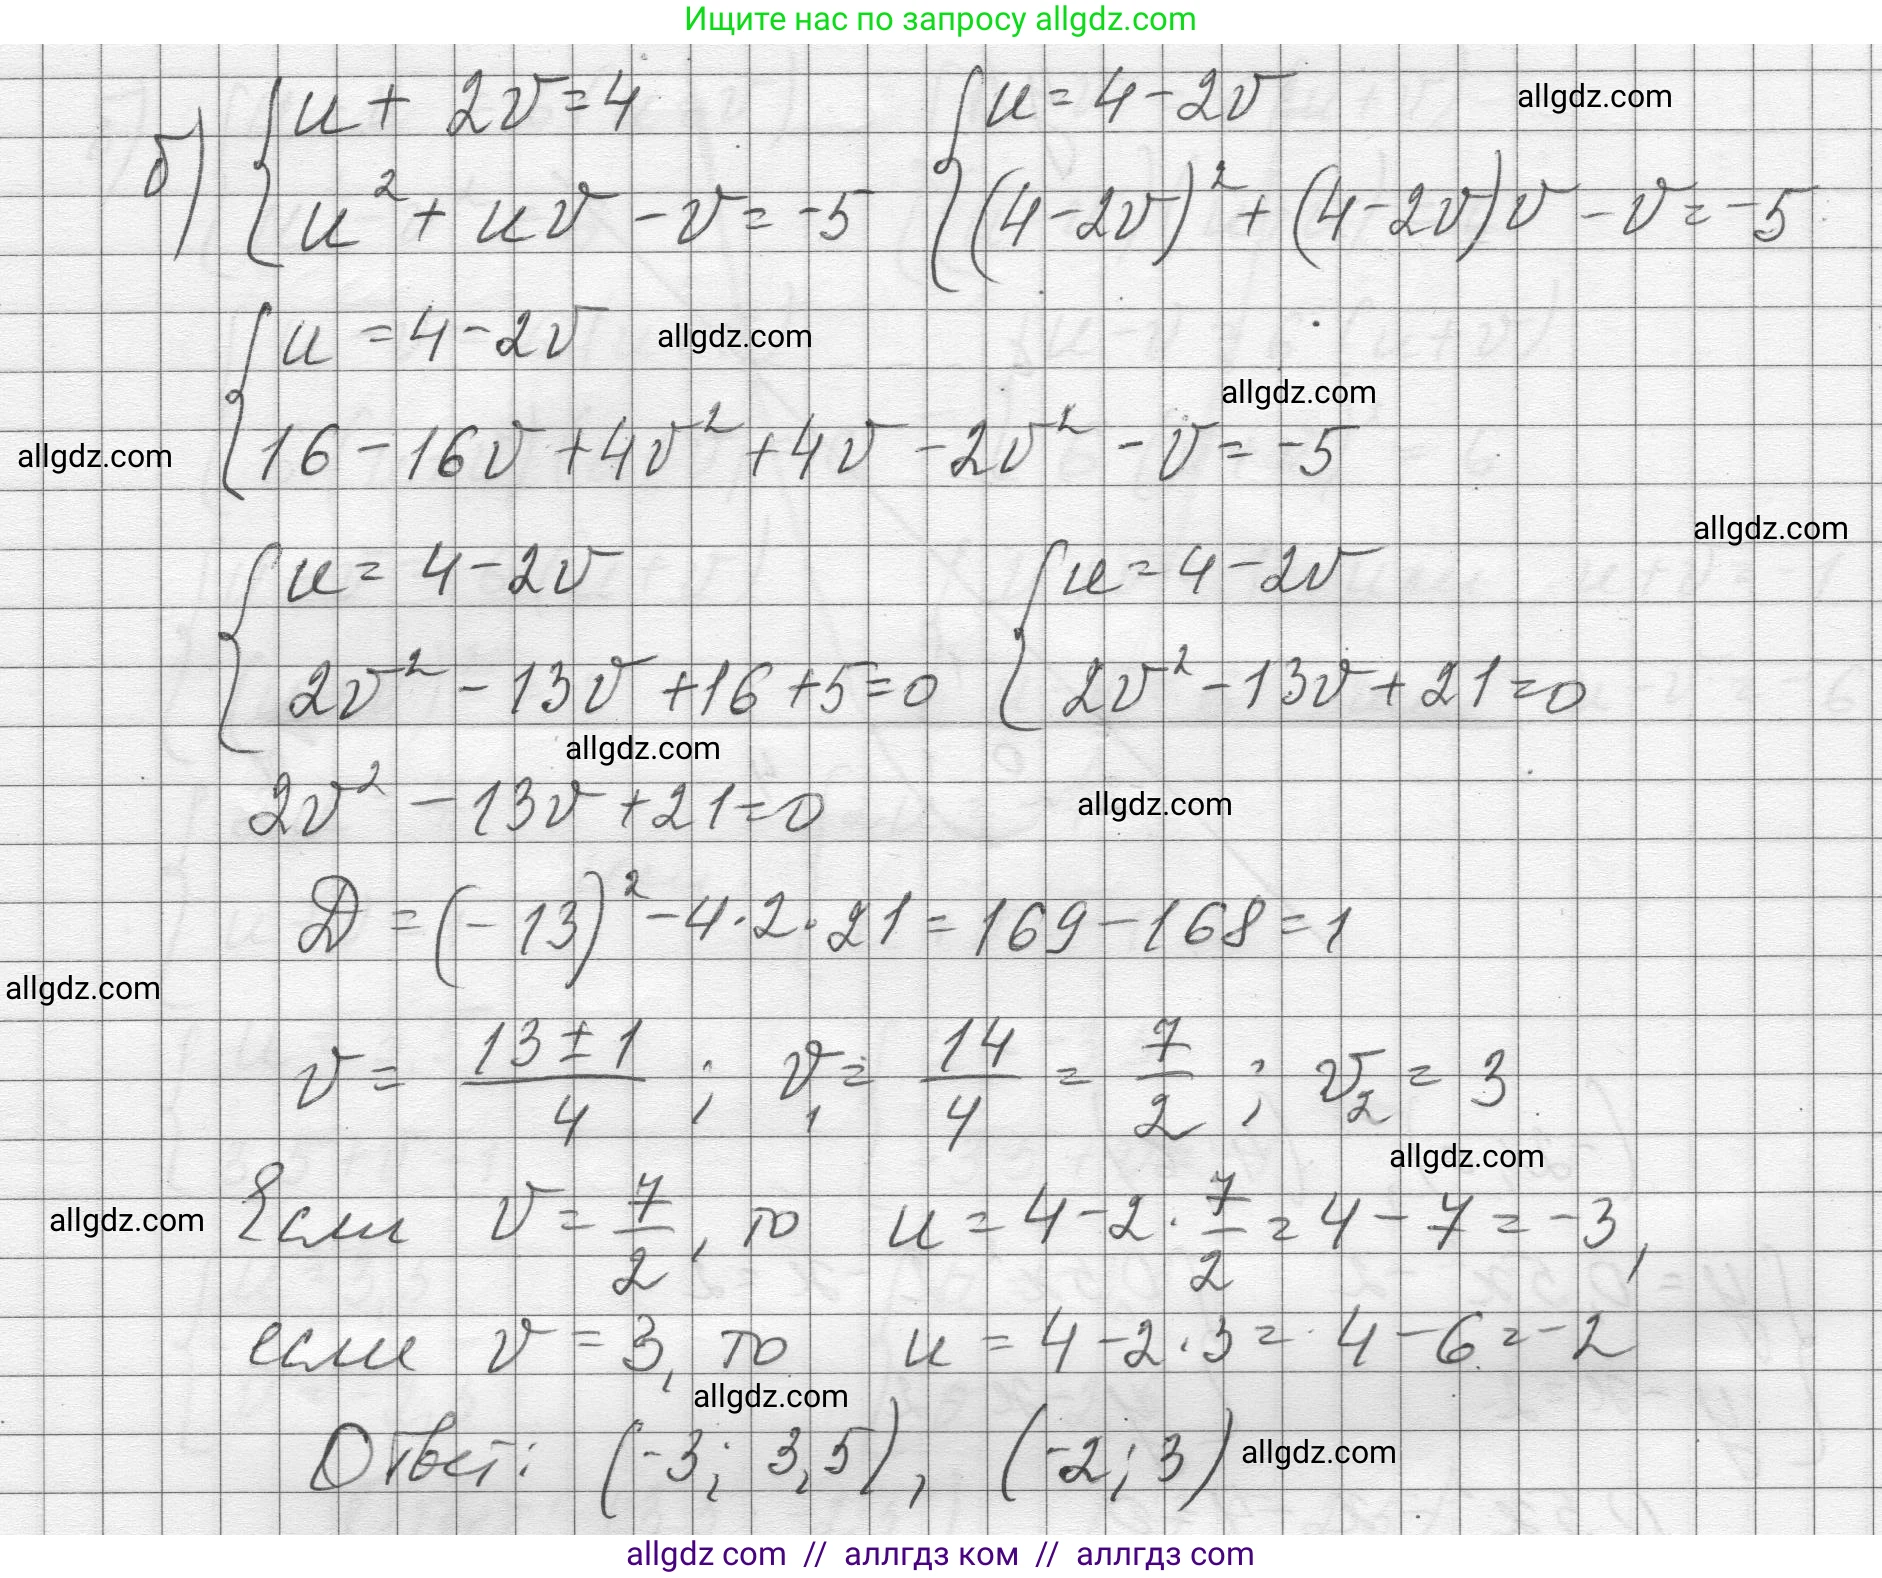 Ищите нас по запросу allgdz.com
б) { u + 2v = 4    { u = 4 - 2v    allgdz.com
u² + uv - v = -5    (4 - 2v)² + (4 - 2v)v - v = -5
{ u = 4 - 2v    allgdz.com
allgdz.com
allgdz.com    16 - 16v + 4v² + 4v - 2v² - v = -5
allgdz.com
{ u = 4 - 2v    { u = 4 - 2v
2v² - 13v + 16 + 5 = 0    2v² - 13v + 21 = 0
allgdz.com
2v² - 13v + 21 = 0    allgdz.com
D = (-13)² - 4·2·21 = 169 - 168 = 1
allgdz.com
v = (13 ± 1)/4 ; v₁ = 14/4 = 7/2 ; v₂ = 3
allgdz.com
allgdz.com    Если v = 7/2, то u = 4 - 2·7/2 = 4 - 7 = -3,
если v = 3, то u = 4 - 2·3 = 4 - 6 = -2
allgdz.com
Ответ: (-3; 3,5), (-2; 3)    allgdz.com
allgdz com // аллгдз ком // аллгдз com